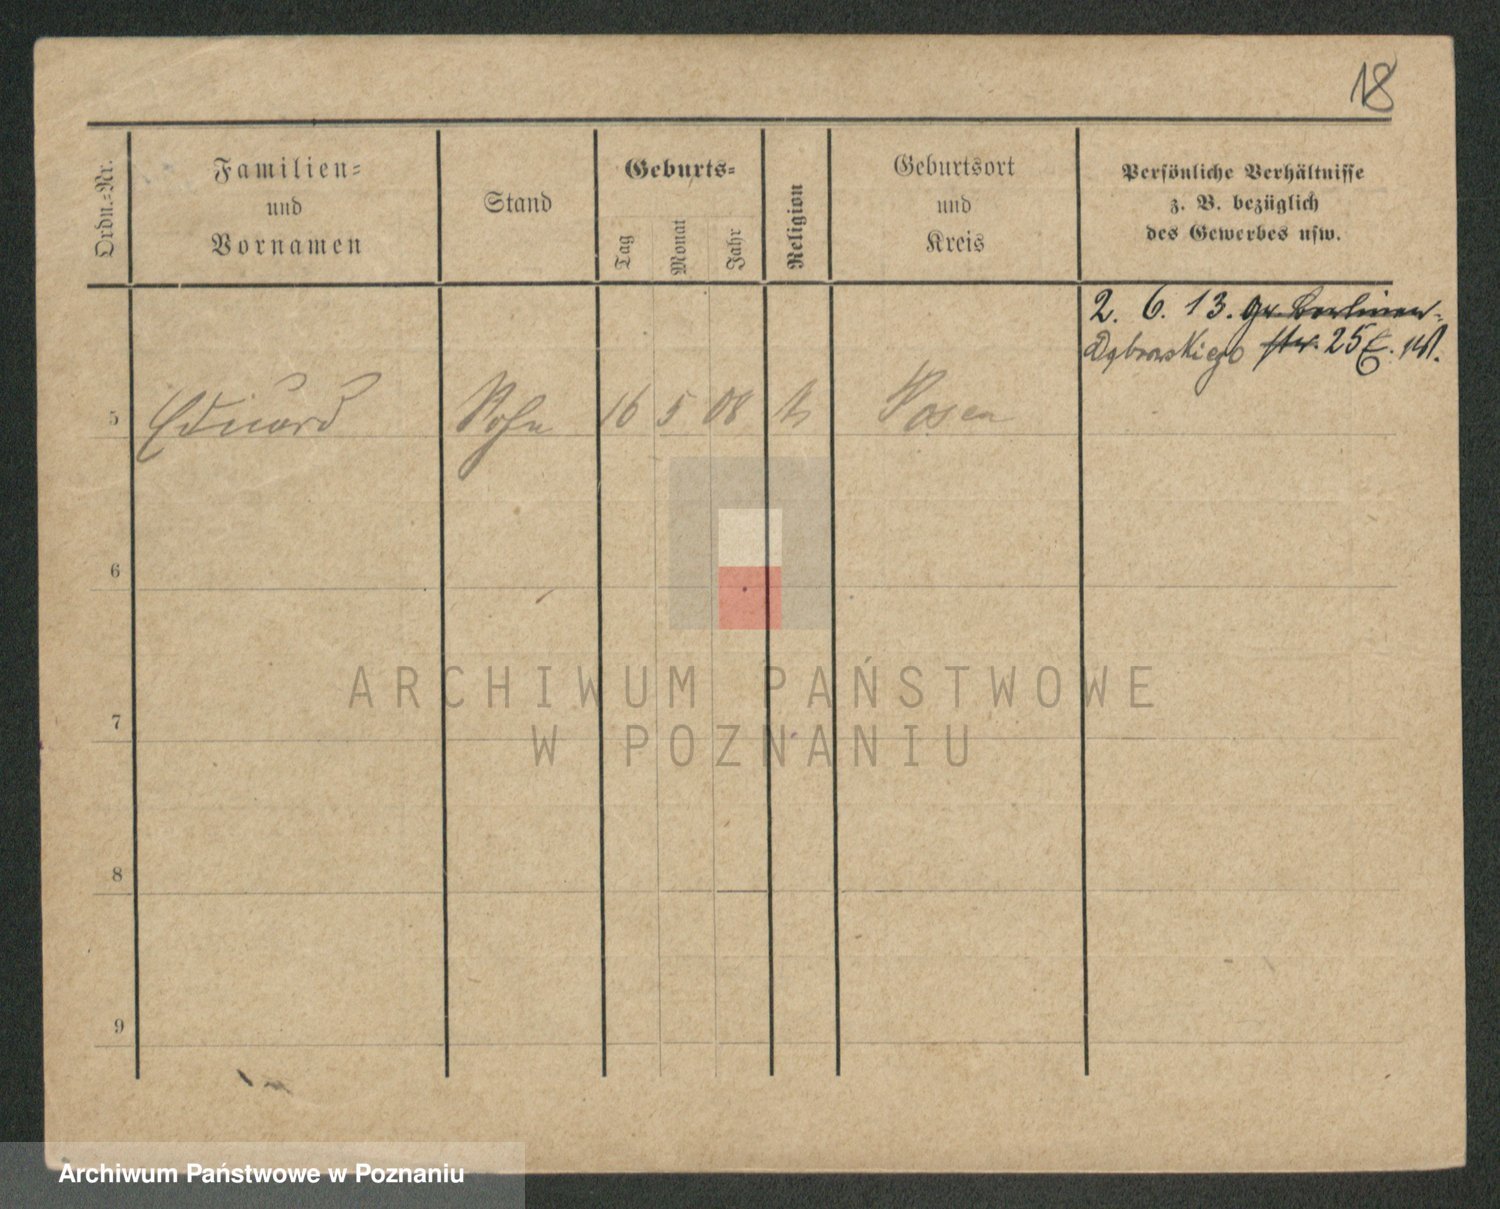 18
Ordn.=Nr.
Familien=
und
Vornamen
Stand
Geburts=
Tag
Monat
Jahr
Religion
Geburtsort
und
Kreis
Persönliche Verhältnisse
z. B. bezüglich
des Gewerbes usw.
2. 6. 13. Gr. Berliner-
Dąbrowskiego str. 25
5 Eduard Sohn 16 5 08 Posen
6
7
8
9
ARCHIWUM PAŃSTWOWE
W POZNANIU
Archiwum Państwowe w Poznaniu